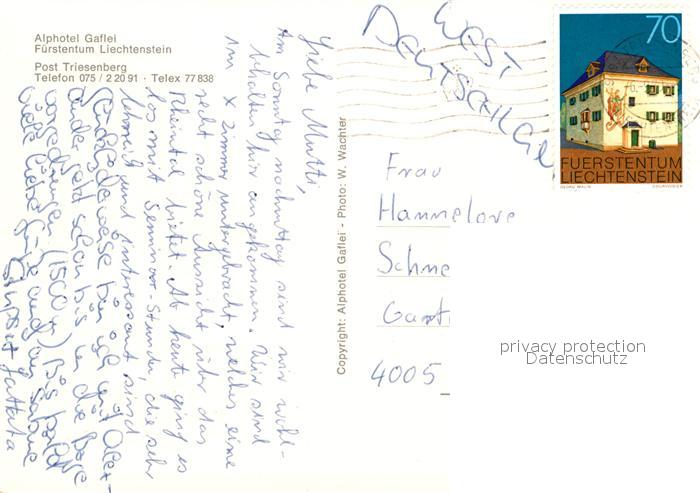 Alphotel Gaflei
Fürstentum Liechtenstein
Post Triesenberg
Telefon 075 / 2 20 91 · Telex 77 838
Liebe Mutti,
Am Sonntag nachmittag sind wir wohl-
behalten hier angekommen. Wir sind
im X Zimmer untergebracht, welches eine
recht schöne Aussicht über das
Rheintal bietet. Ab heute ging es
los mit Seminar-Stunden, die sehr
und interessant sind
bin ich mit Alex-
ander schon bis in die
(1500 m) Bis bald
viele liebe und
Copyright: Alphotel Gaflei - Photo: W. Wachter
WEST
DEUTSCHLAND
70
FUERSTENTUM
LIECHTENSTEIN
GEORG MALIN
COURVOISIER
Frau
Hannelore
Schne
Gart
4005
privacy protection
Datenschutz